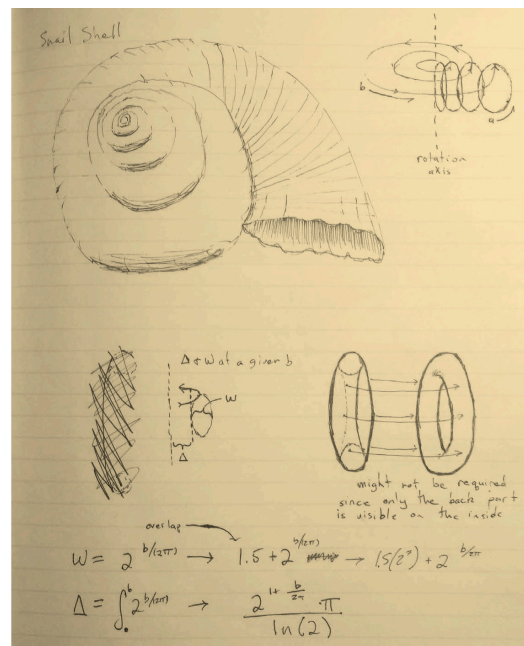 Snail Shell
b
a
rotation
axis
Δ & W at a given b
W
Δ
might not be required
since only the back part
is visible on the inside
overlap
W = 2^(b/(2π)) → 1.5 + 2^(b/(2π)) → 1.5(2^?) + 2^(b/2π)
Δ = ∫₀ᵇ 2^(b/(2π)) → (2^(1 + b/2π) · π) / ln(2)